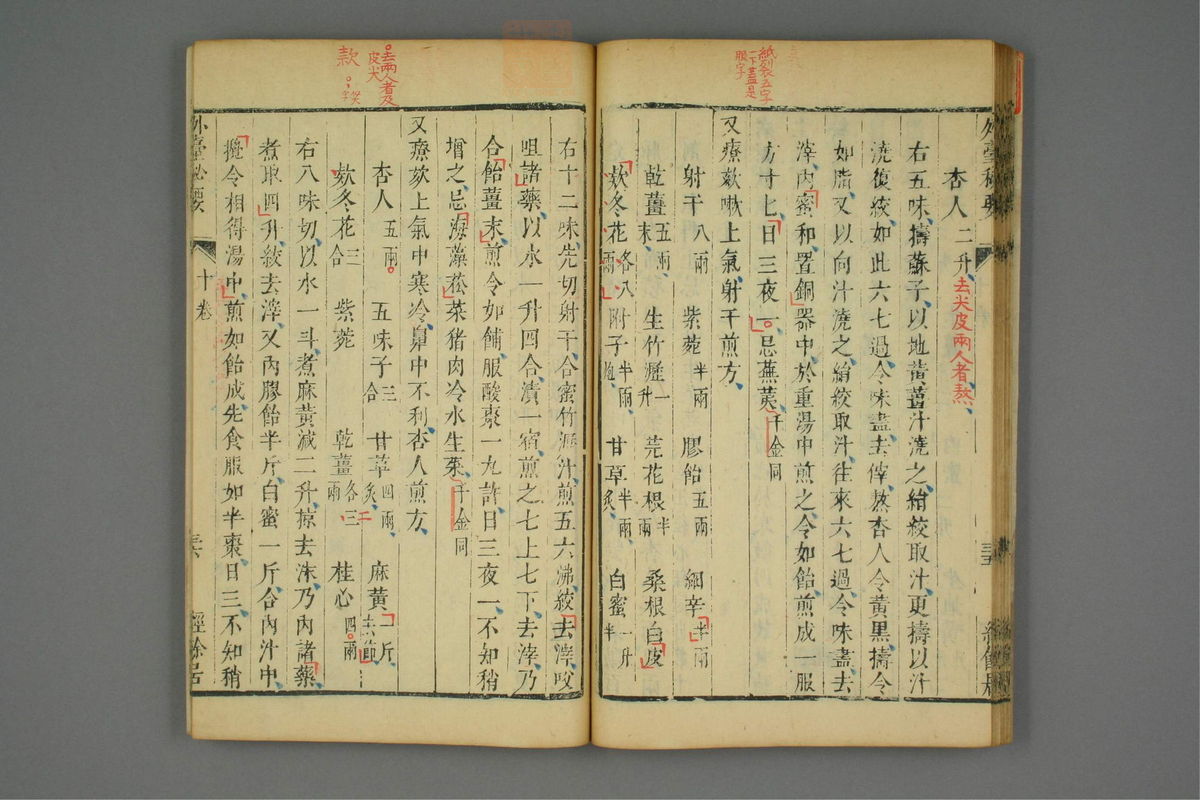 紙裂五字
一下蓋是
服字
杏人二升去尖皮兩人者熬
右五味擣蘇子以地黃薑汁澆之絹絞取汁更擣以汁
澆復絞如此六七過令味盡去滓熬杏人令黃黑擣令
如脂又以向汁澆之絹絞取汁往來六七過令味盡去
滓內蜜和置銅器中於重湯中煎之令如飴煎成一服
方寸匕日三夜一忌蕪荑千金同
又療欬嗽上氣射干煎方
射干八兩 紫菀半兩 膠飴五兩 細辛半兩
乾薑五兩末 生竹瀝一升 芫花根半兩 桑根白皮
欬冬花各八兩 附子半兩炮 甘草半兩炙 白蜜一升半
外臺秘要
三五
經餘居
去兩人者及
皮尖
款
右十二味先切射干合蜜竹瀝汁煎五六沸絞去滓㕮
咀諸藥以水一升四合漬一宿煎之七上七下去滓乃
合飴薑末煎令如餔服酸棗一丸許日三夜一不知稍
增之忌海藻菘菜猪肉冷水生菜千金同
又療欬上氣中寒冷鼻中不利杏人煎方
杏人五兩 五味子三合 甘草四兩炙 麻黃一斤去節
欬冬花三合 紫菀 乾薑各三兩 桂心四兩
右八味切以水一斗煮麻黃減二升掠去沫乃內諸藥
煮取四升絞去滓又內膠飴半斤白蜜一斤合內汁中
攪令相得湯中煎如飴成先食服如半棗日三不知稍
外臺秘要
十卷
三六
經餘居